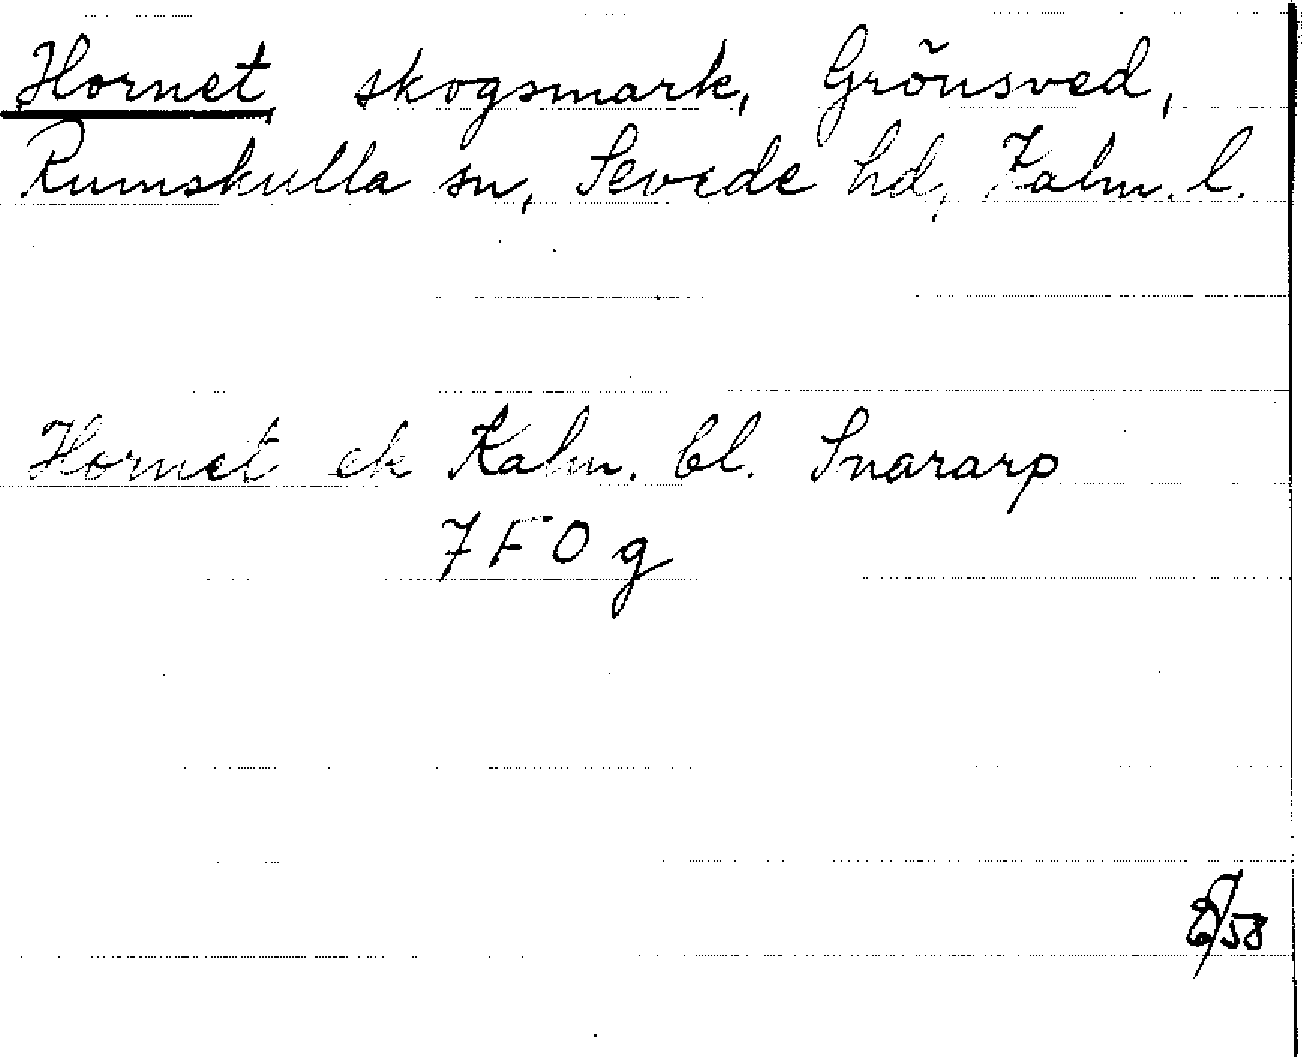 Hornet, skogsmark, Grönsved,
Rumskulla sn, Sevede hd, Kalm. l.
Hornet ek Kalm. bl. Snararp
7 F 0 g
/58